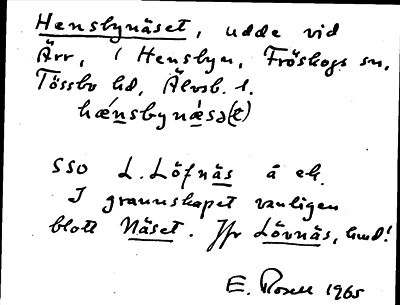 Hensbynäset, udde vid
Ärr, i Hensbyn, Fröskogs sn,
Tössbo hd, Älvsb. l.
hǽnsbynæ̀sə(t)
SSO L. Löfnäs å ek.
I grannskapet vanligen
blott Näset. Jfr Lövnäs, hmd!
E. Rosell 1965